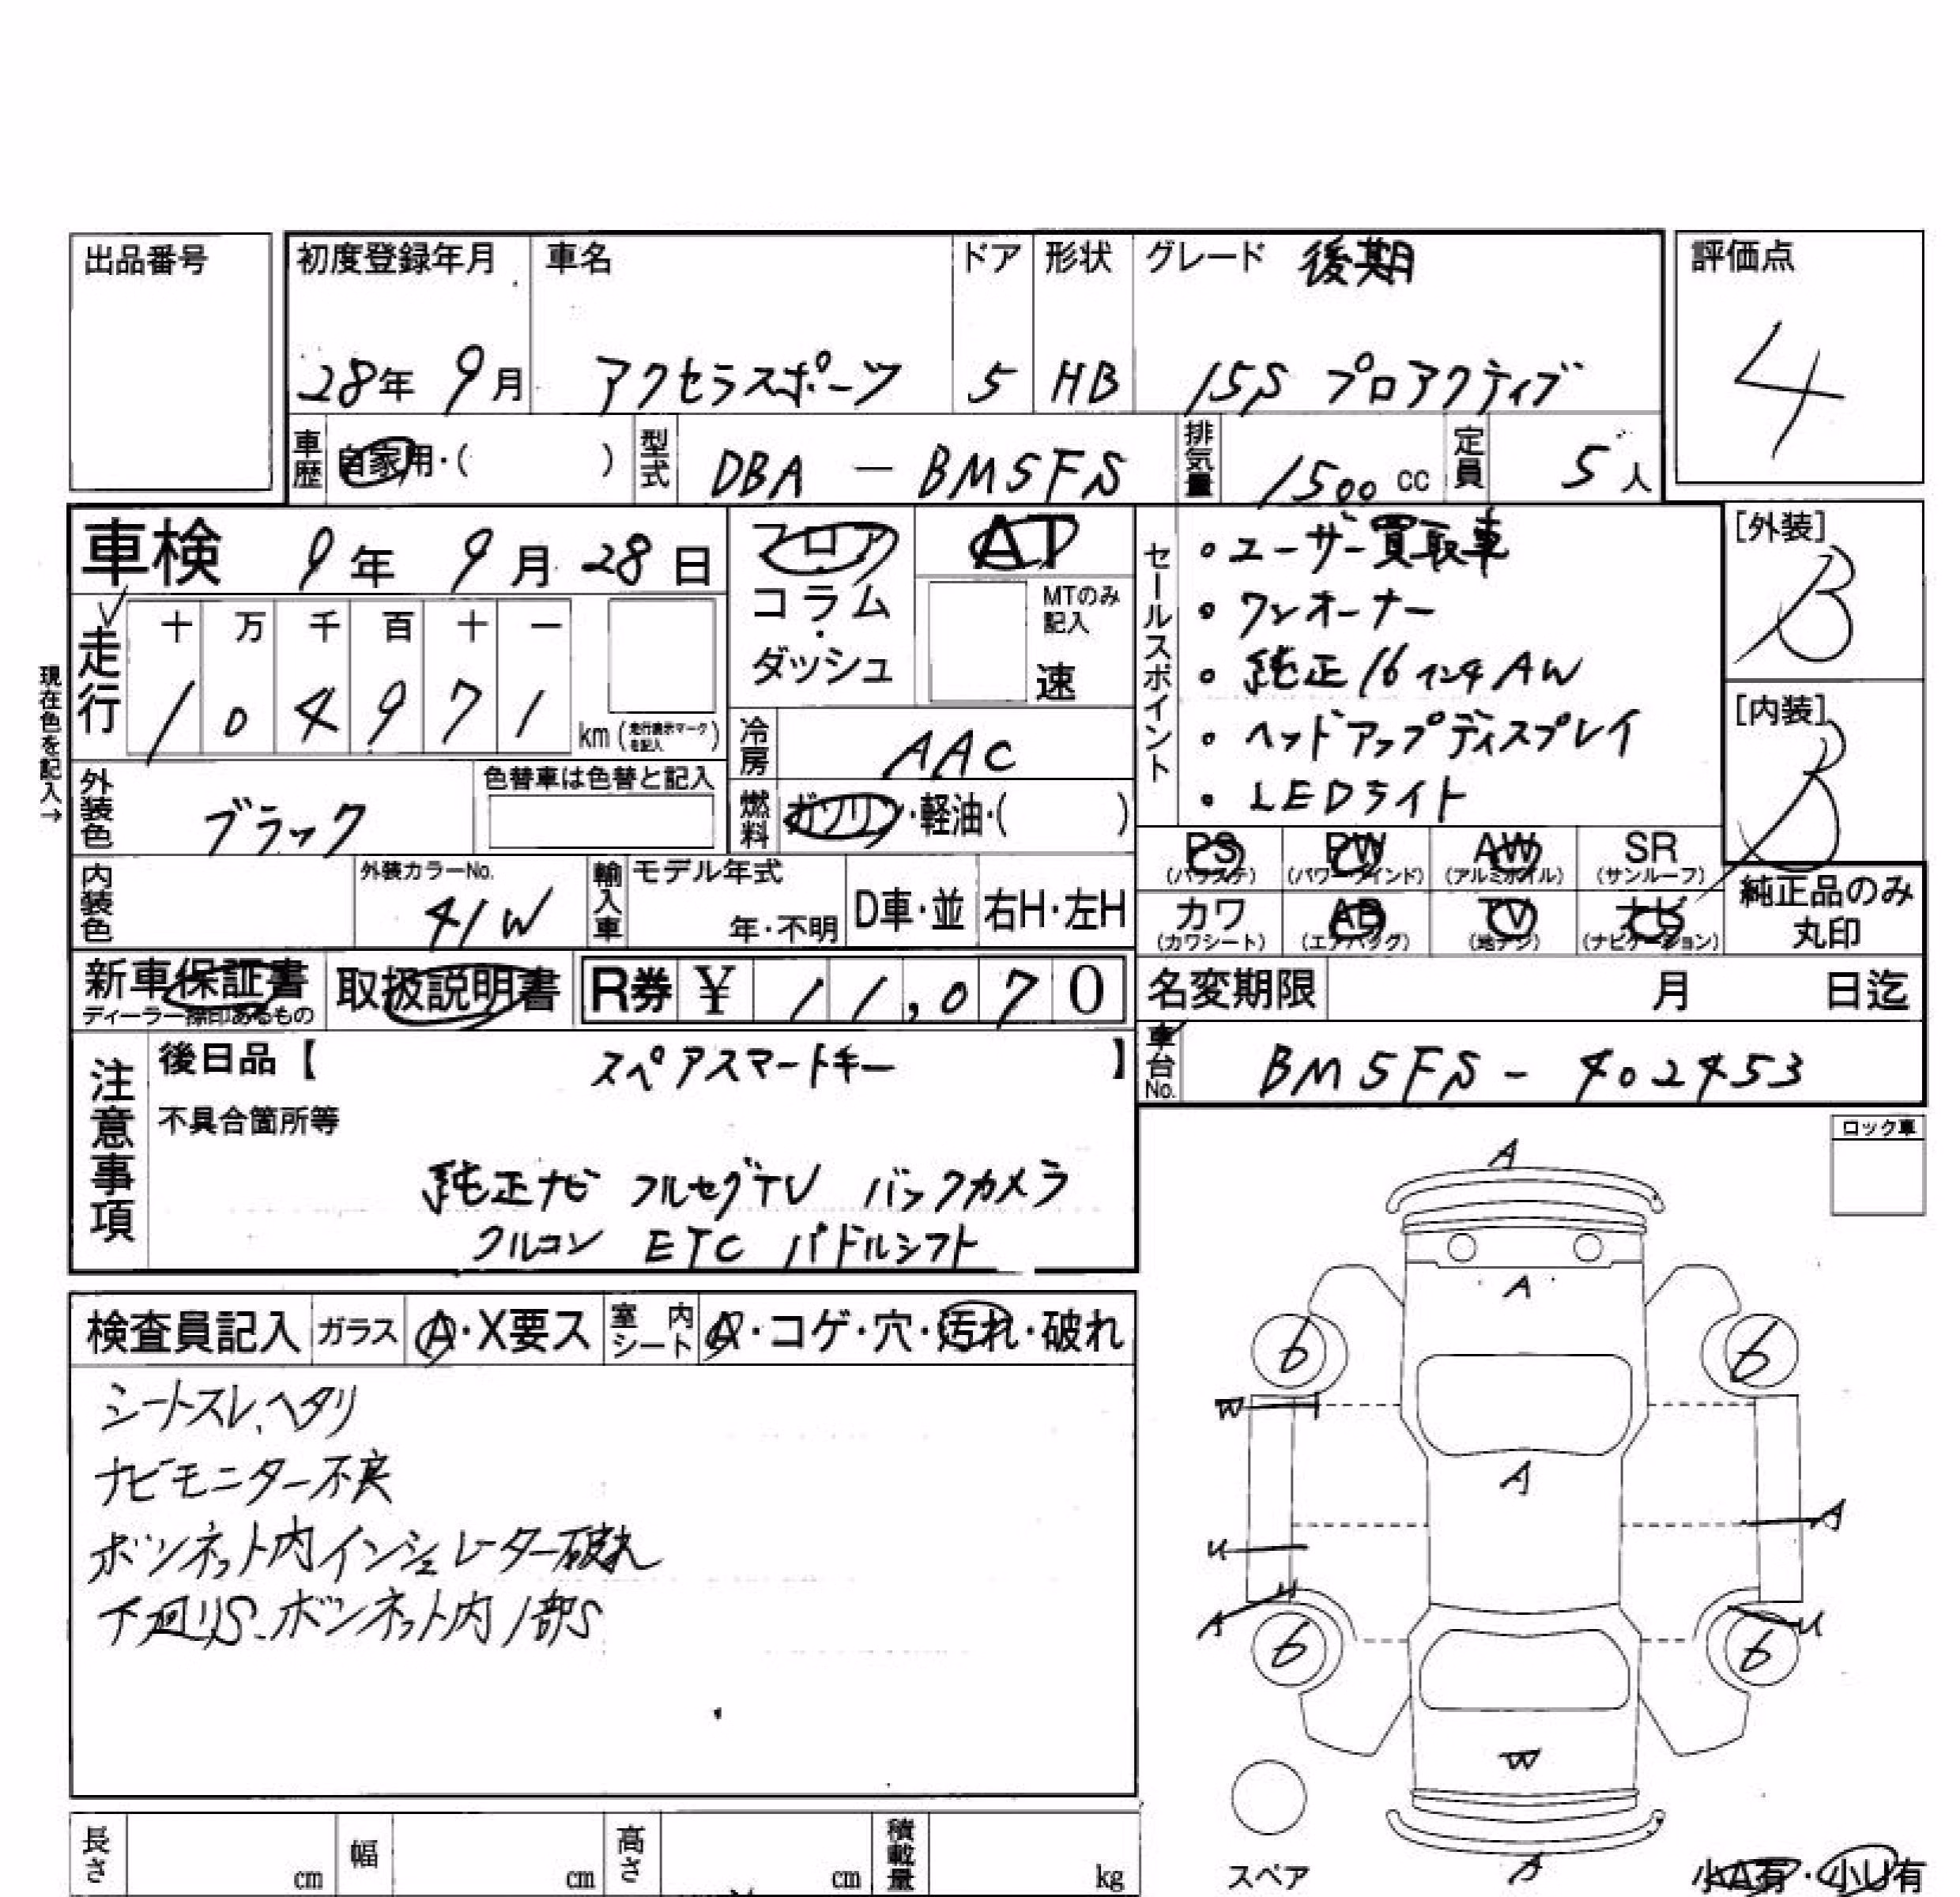 出品番号
初度登録年月 車名 ドア 形状 グレード 後期 評価点
28年 9月 アクセラスポーツ 5 HB 15S プロアクティブ 4
車歴 自家用・( ) 型式 DBA - BM5FS 排気量 1500 cc 定員 5人
車検 9年 9月 28日
フロア
コラム
・
ダッシュ
AT
MTのみ
記入
速
セールスポイント
・ユーザー買取車
・ワンオーナー
・純正16インチAW
・ヘッドアップディスプレイ
・LEDライト
[外装]
B
[内装]
B
走行 十 万 千 百 十 一
1 0 4 9 7 1 km (走行表示マークを記入)
現在色を記入→
冷房 AAC
外装色 ブラック 色替車は色替と記入
燃料 ガソリン・軽油・( )
PS (パワステ) PW (パワーウインド) AW (アルミホイル) SR (サンルーフ)
カワ (カワシート) AB (エアバッグ) TV (地デジ) ナビ (ナビゲーション)
純正品のみ
丸印
内装色 外装カラーNo. 41W 輸入車 モデル年式 年・不明 D車・並 右H・左H
新車保証書 取扱説明書 R券 ¥ 11,070 名変期限 月 日迄
ディーラー捺印あるもの
車台No. BM5FS - 402453
注意事項
後日品【 スペアスマートキー 】
不具合箇所等
純正ナビ フルセグTV バックカメラ
クルコン ETC パドルシフト
ロック車
検査員記入 ガラス A・X要ス 室内シート A・コゲ・穴・汚れ・破れ
シートスレ、ヘタリ
ナビモニター不良
ボンネット内インシュレーター破れ
下廻りS、ボンネット内1部S
A
A
6 6
W
A
A
U
U
A
U
6 6
W
A
スペア
小A有・小U有
長さ cm 幅 cm 高さ cm 積載量 kg